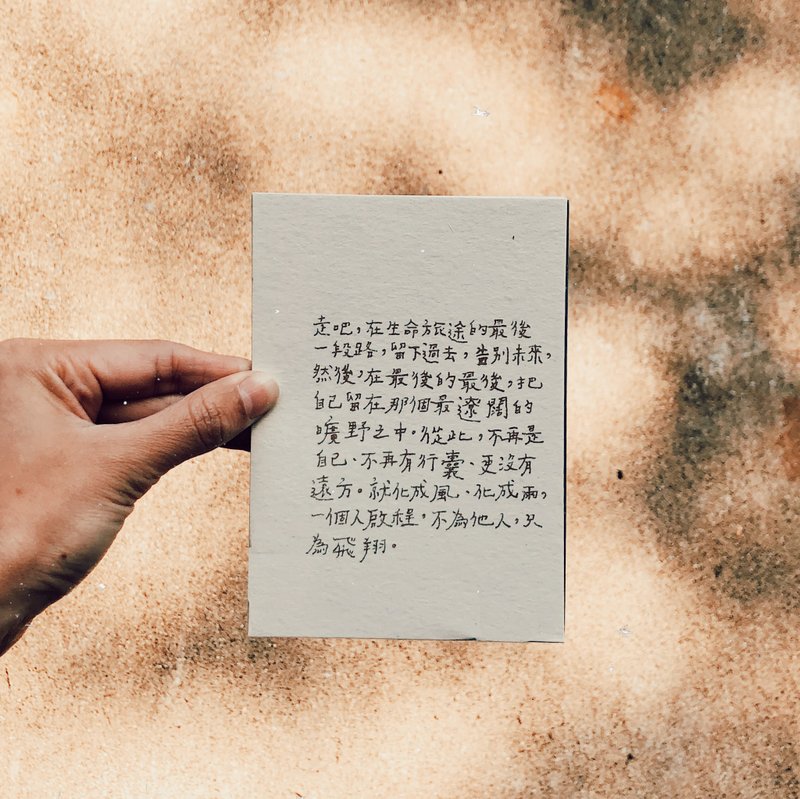 走吧,在生命旅途的最後
一段路,留下過去,告別未來,
然後,在最後的最後,把
自己留在那個最遼闊的
曠野之中。從此,不再是
自己、不再有行囊、更沒有
遠方。就化成風、化成雨,
一個人啟程,不為他人,只
為飛翔。